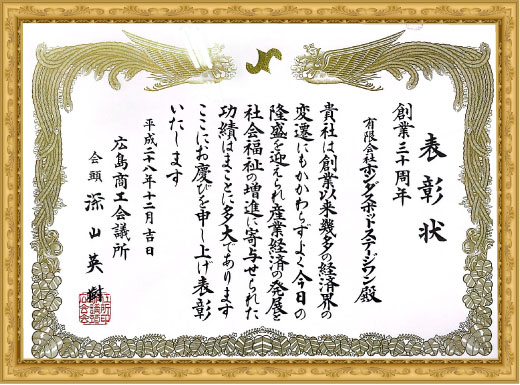 表彰状
創業三十周年
有限会社ホンダスポットステージワン殿
貴社は創業以来幾多の経済界の
変遷にもかかわらずよく今日の
隆盛を迎えられ産業経済の発展と
社会福祉の増進に寄与せられた
功績はまことに多大であります
ここにお慶びを申し上げ表彰
いたします
平成二十八年十二月吉日
広島商工会議所
会頭 深山英樹